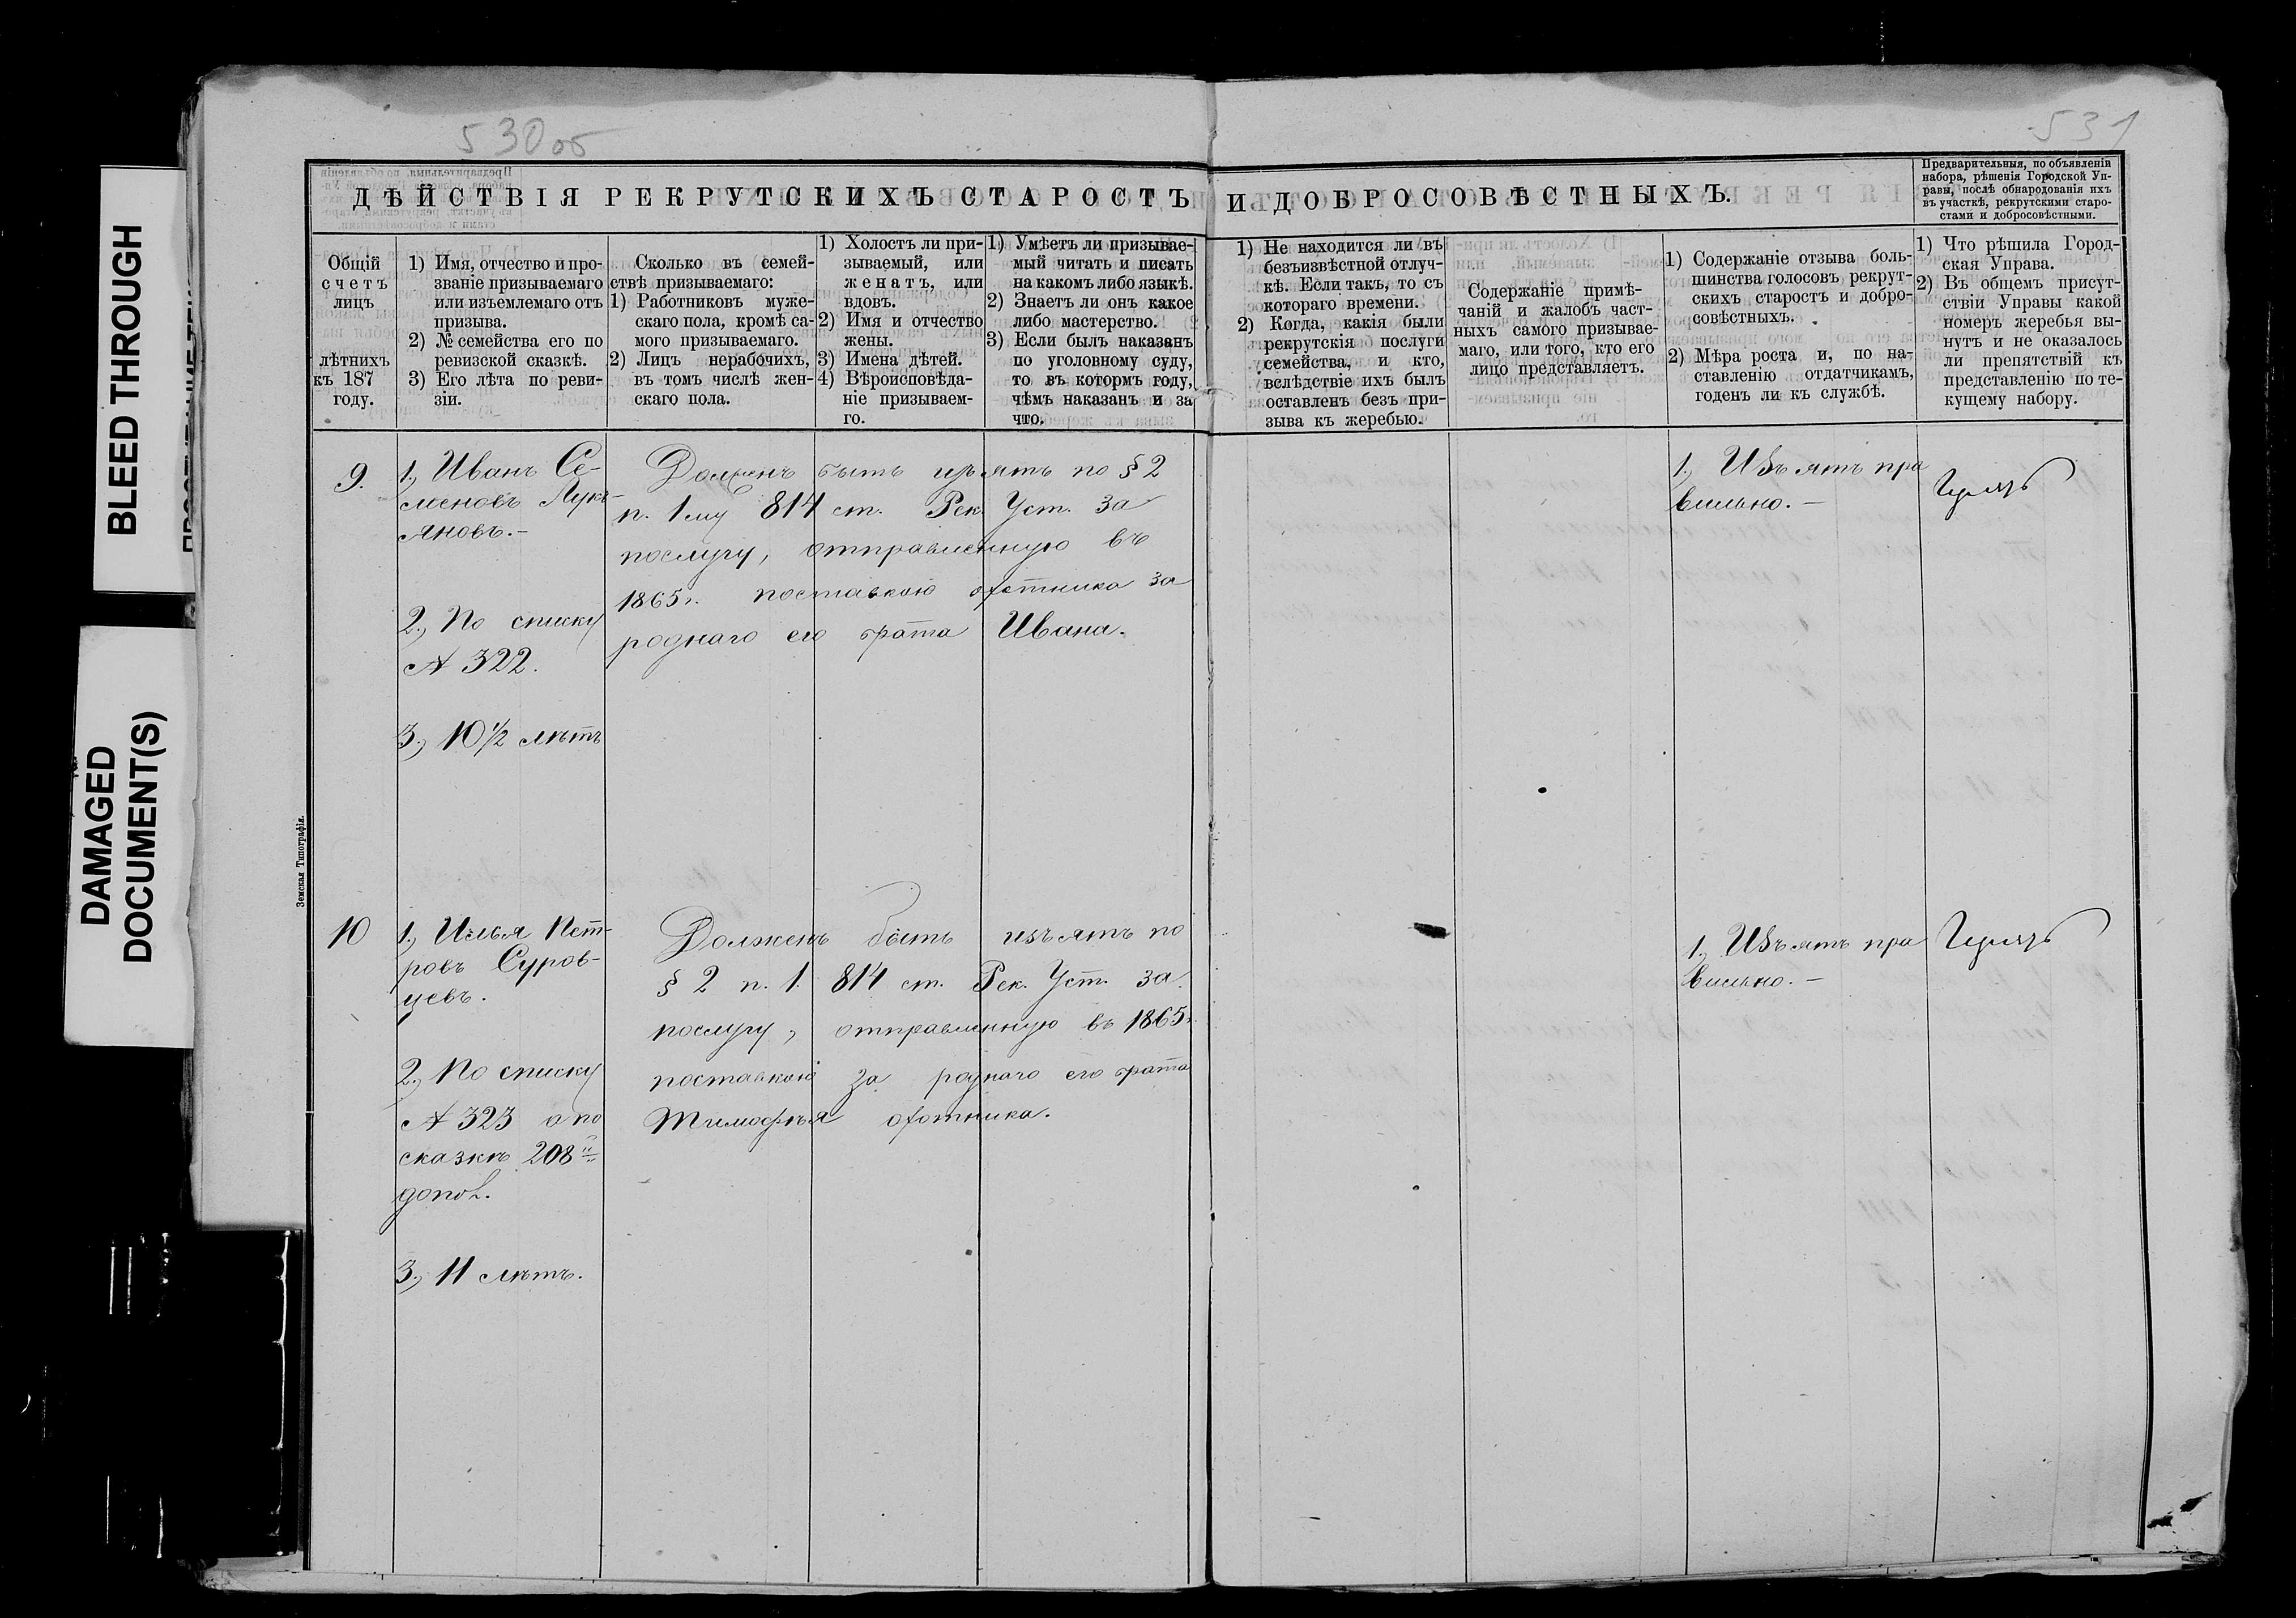 BLEED THROUGH
DAMAGED
DOCUMENT(S)
530об
531
ДѢЙСТВІЯ РЕКРУТСКИХЪ СТАРОСТЪ
И ДОБРОСОВѢСТНЫХЪ.
Предварительныя, по объявленіи
набора, рѣшенія Городской Уп-
равы, послѣ обнародованія ихъ
въ участкѣ, рекрутскими старо-
стами и добросовѣстными.
Общій
счетъ
лицъ
лѣтнихъ
къ 187
году.
1) Имя, отчество и про-
званіе призываемаго
или изъемлемаго отъ
призыва.
2) № семейства его по
ревизской сказкѣ.
3) Его лѣта по реви-
зіи.
Сколько въ семей-
ствѣ призываемаго:
1) Работниковъ муже-
скаго пола, кромѣ са-
мого призываемаго.
2) Лицъ нерабочихъ,
въ томъ числѣ жен-
скаго пола.
1) Холостъ ли при-
зываемый, или
женатъ, или
вдовъ.
2) Имя и отчество
жены.
3) Имена дѣтей.
4) Вѣроисповѣда-
ніе призываем-
го.
1) Умѣетъ ли призывае-
мый читать и писать
на какомъ либо языкѣ.
2) Знаетъ ли онъ какое
либо мастерство.
3) Если былъ наказанъ
по уголовному суду,
то въ котормъ году,
чѣмъ наказанъ и за
что.
1) Не находится ли въ
безъизвѣстной отлуч-
кѣ. Если такъ, то съ
котораго времени.
2) Когда, какія были
рекрутскія послуги
семейства, и кто,
вслѣдствіе ихъ былъ
оставленъ безъ при-
зыва къ жеребью.
Содержаніе примѣ-
чаній и жалобъ част-
ныхъ самого призывае-
маго, или того, кто его
лицо представляетъ.
1) Содержаніе отзыва боль-
шинства голосовъ рекрут-
скихъ старостъ и добро-
совѣстныхъ.
2) Мѣра роста и, по на-
ставленію отдатчикамъ,
годенъ ли къ службѣ.
1) Что рѣшила Город-
ская Управа.
2) Въ общемъ присут-
ствіи Управы какой
номеръ жеребья вы-
нутъ и не оказалось
ли препятствій къ
представленію по те-
кущему набору.
9.
1., Иванъ Се-
меновъ Лукь-
яновъ.-
2., По списку
№ 322.
3., 10 1/2 лѣтъ
Долженъ быть изъятъ по § 2
п. 1му 814 ст. Рек. Уст. за
послугу, отправленную въ
1865 г. поставкою охотника за
роднаго его брата Ивана.
1., Изъятъ пра
вильно.-
10
1., Илья Пет-
ровъ Суров-
цевъ.
2., По списку
№ 323 а по
сказкѣ 208й
допол.
3., 11 лѣтъ.
Долженъ быть изъятъ по
§ 2 п. 1. 814 ст. Рек. Уст. за
послугу, отправленную въ 1865 г.
поставкою за роднаго его брата
Тимофѣя охотника.
1., Изъятъ пра
вильно.-
Земская Типографія.